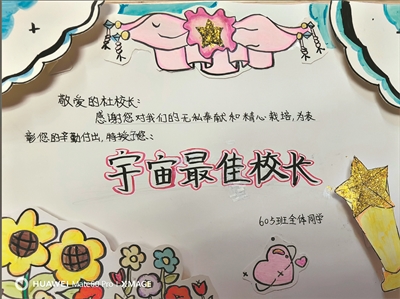 敬爱的杜校长:
感谢您对我们的无私奉献和精心栽培,为表
彰您的辛勤付出,特授予您:
宇宙最佳校长
603班全体同学
HUAWEI Mate60 Pro | XMAGE